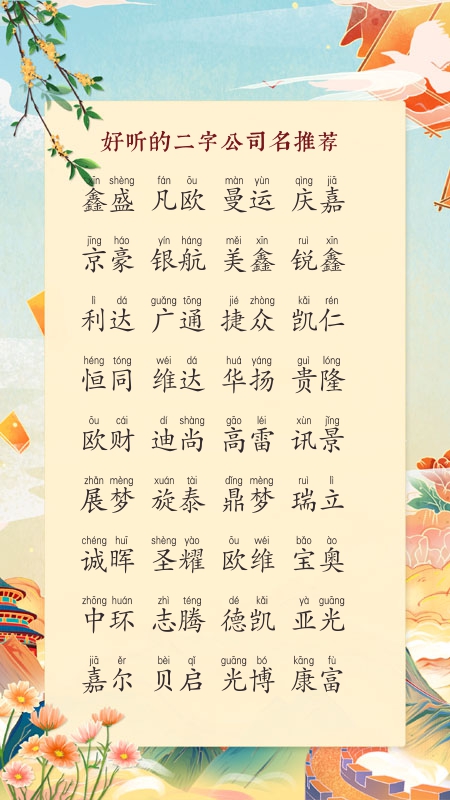 好听的二字公司名推荐
xīn shèng fán ōu màn yùn qìng jiā
鑫盛 凡欧 曼运 庆嘉
jīng háo yín háng měi xīn ruì xīn
京豪 银航 美鑫 锐鑫
lì dá guǎng tōng jié zhòng kǎi rén
利达 广通 捷众 凯仁
héng tóng wéi dá huá yáng guì lóng
恒同 维达 华扬 贵隆
ōu cái dí shàng gāo léi xùn jǐng
欧财 迪尚 高雷 讯景
zhǎn mèng xuán tài dǐng mèng ruì lì
展梦 旋泰 鼎梦 瑞立
chéng huī shèng yào ōu wéi bǎo ào
诚晖 圣耀 欧维 宝奥
zhōng huán zhì téng dé kǎi yà guāng
中环 志腾 德凯 亚光
jiā ěr bèi qǐ guāng bó kāng fù
嘉尔 贝启 光博 康富